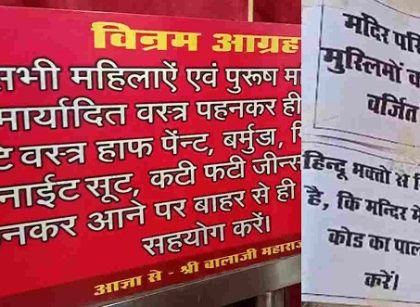 विनम्र आग्रह
सभी महिलाऐं एवं पुरूष
मार्यादित वस्त्र पहनकर ही
वस्त्र हाफ पेंन्ट, बर्मुडा,
नाईट सूट, कटी फटी जीन्स
आने पर बाहर से ही
सहयोग करें।
आज्ञा से - श्री बालाजी महाराज
मंदिर
मुस्लिमों
वर्जित
हिन्दू भक्तो से
है, कि मन्दिर में
कोड का
करें।